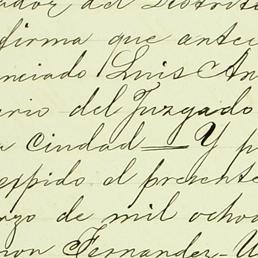 ador del Distrito
firma que antec
enciado Luis An
ario del Juzgado
a Ciudad — Y p
expido el presente
rzo de mil ocho
mon Fernandez - U